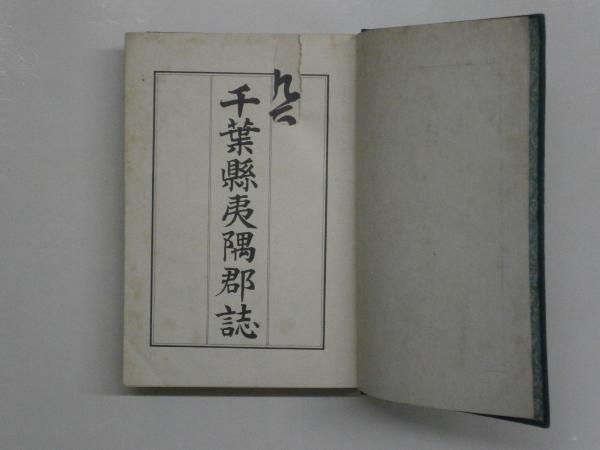 千葉縣夷隅郡誌